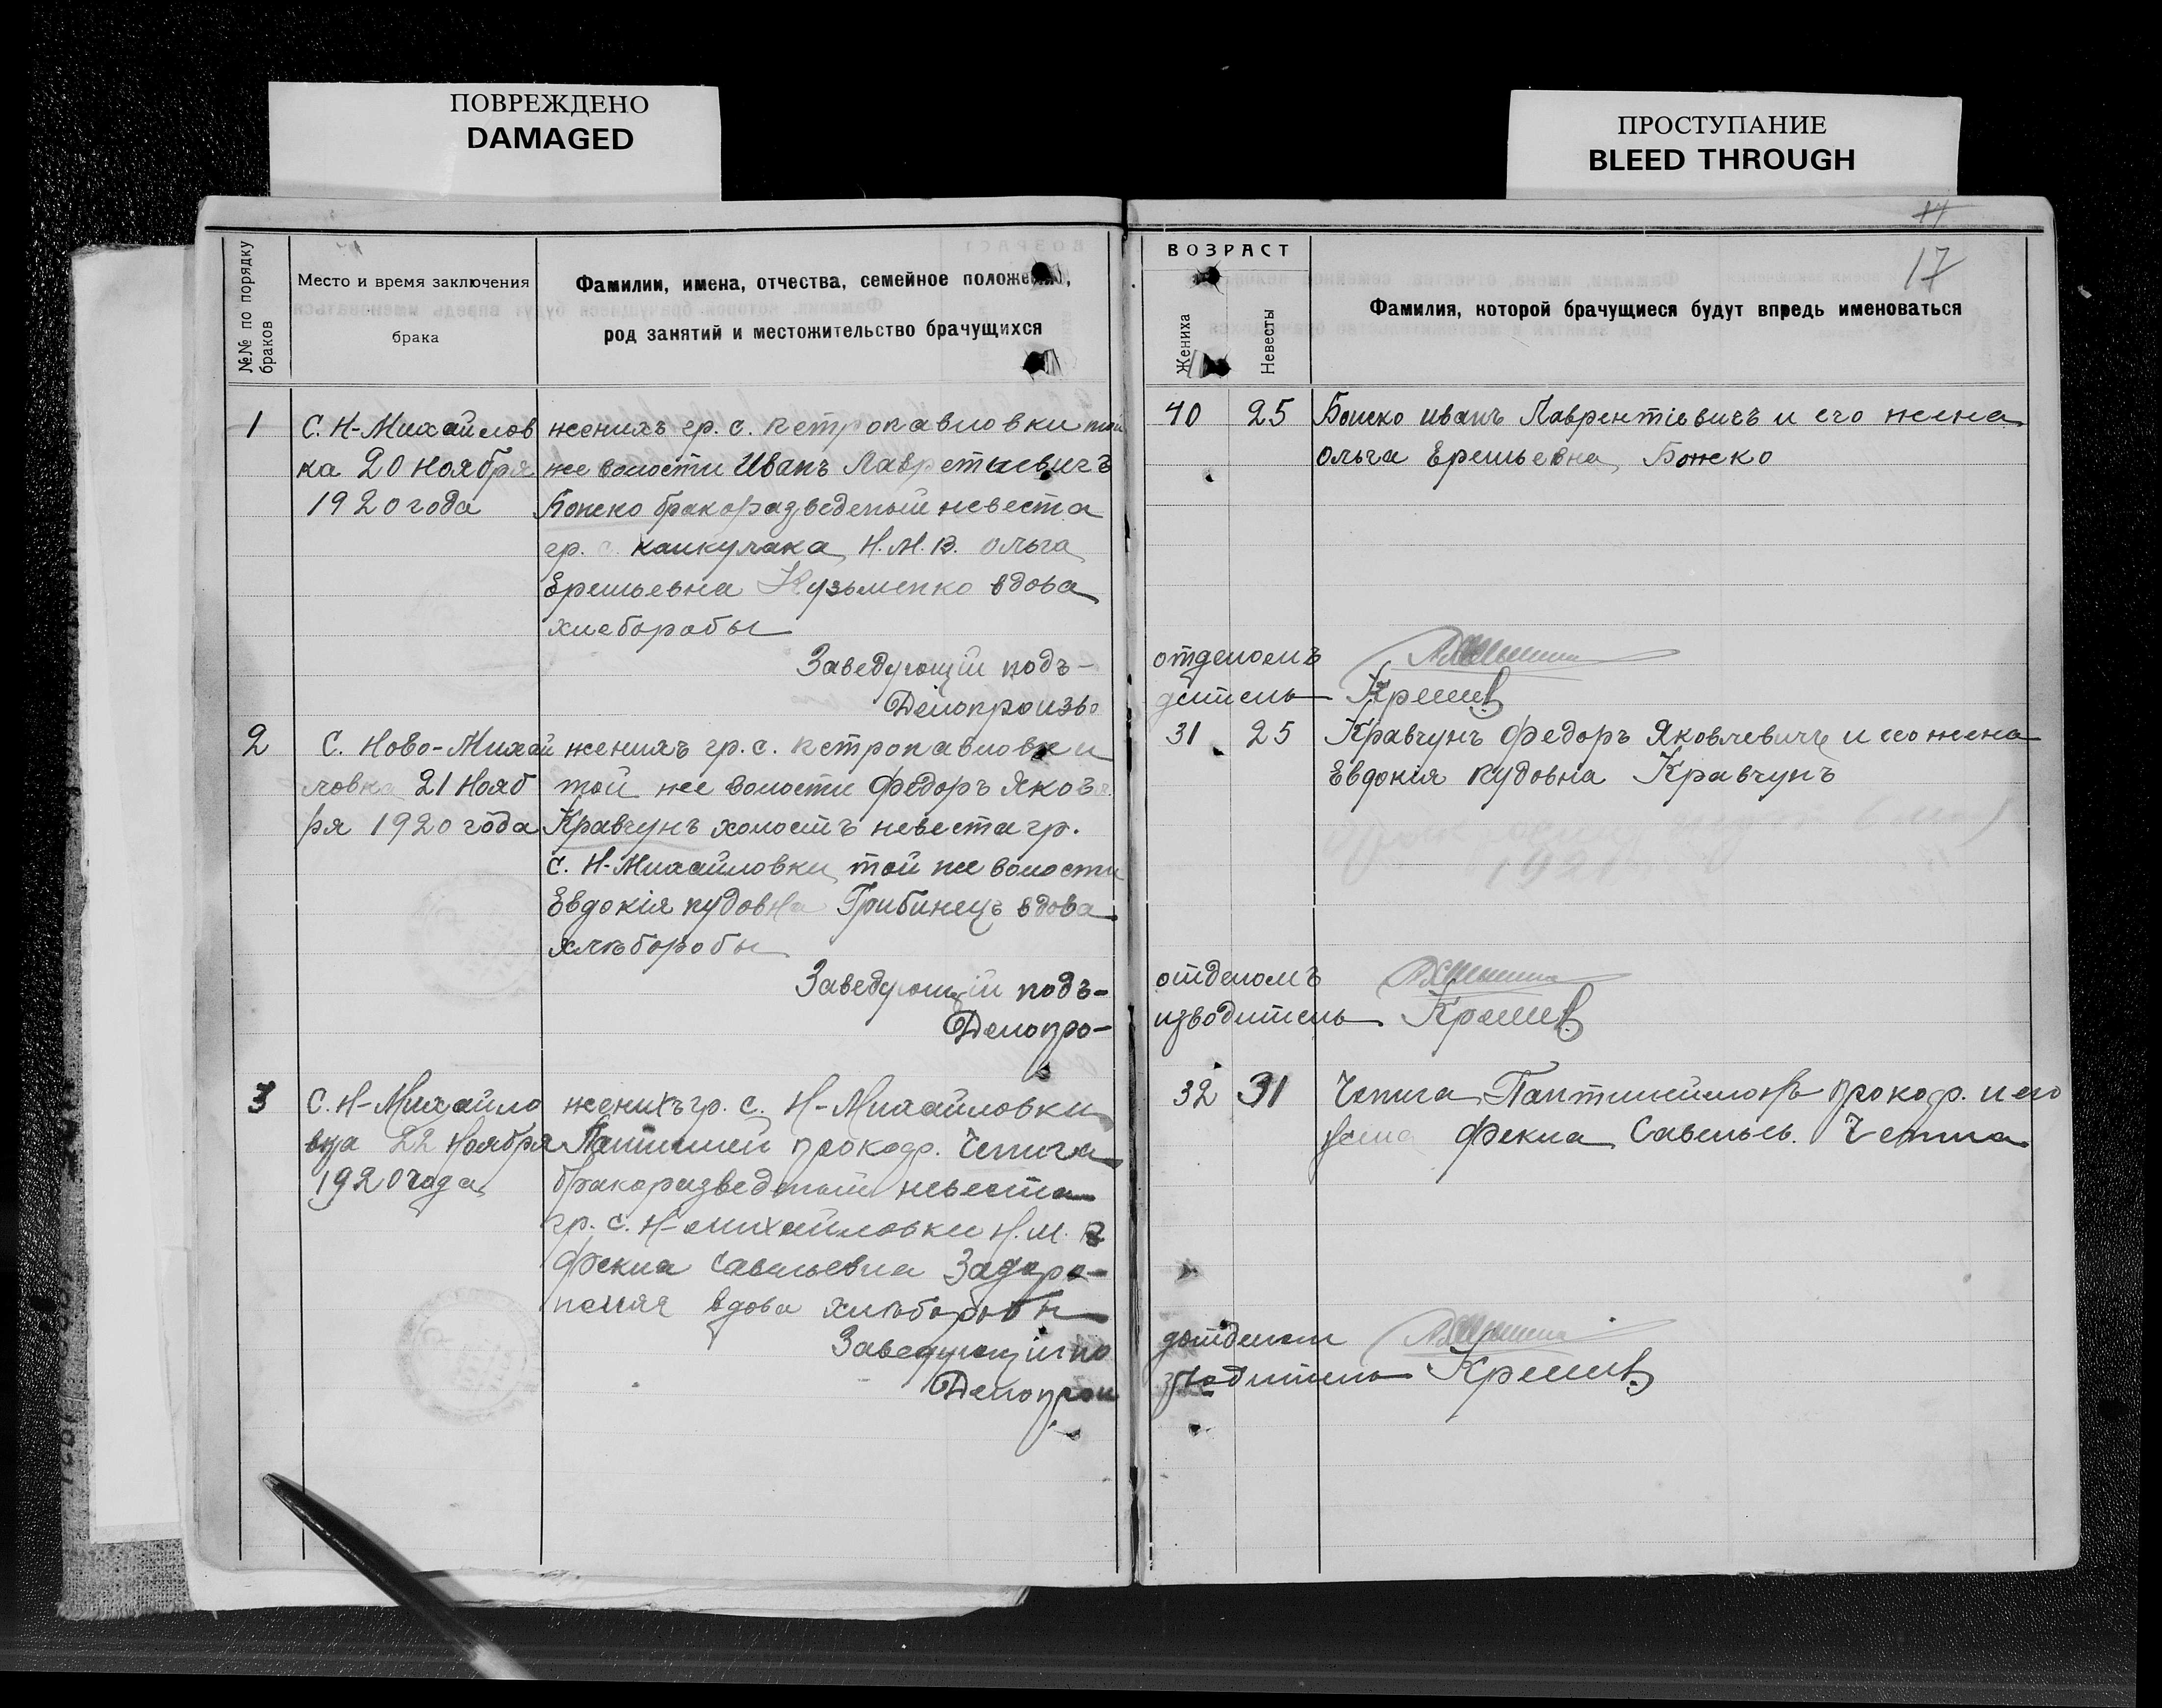 ПОВРЕЖДЕНО
DAMAGED
ПРОСТУПАНИЕ
BLEED THROUGH
17
№№ по порядку браков
Место и время заключения
брака
Фамилии, имена, отчества, семейное положение,
род занятий и местожительство брачущихся
ВОЗРАСТ
Жениха
Невесты
Фамилия, которой брачущиеся будут впредь именоваться
1
С. Н-Михайлов
ка 20 ноября
1920 года
женихъ гр. с. Петропавловки той
же волости Иванъ Лавретьевичъ
Божко бракоразведеный невеста
гр. с. канкулака Н. М. В. Ольга
Еремьевна Кузьменко вдова
хлеборобы
Заведующій подъ-
Делопроизво
40 25 Божко иванъ Лаврентіевичъ и его жена
Ольга Еремьевна Божко
отделомъ
дитель
2
С. Ново-Михай
ловка 21 Нояб
ря 1920 года
женихъ гр. с. Петропавловки
той же волости Федоръ Яковл.
Кравчунъ холостъ невеста гр.
с. Н-Михайловки той же волости
Евдокія кудовна Грибинецъ вдова
хлѣборобы
Заведующій подъ-
Делопро-
31 25 Кравчунъ Федоръ Яковлевичъ и его жена
Евдокія кудовна Кравчунъ
отделомъ
изводитель
3
С. Н-Михайло
вка 22 Ноября
1920 года
женихъ гр. с. Н-Михайловки
прокоф. Чепига
бракоразведеный невеста
гр. с. Н-михайловки Н. М. В
Фекла Савельевна Задоро-
жняя вдова хлѣборобы
Заведующій по
Делопрои
32 31 Чепига прокоф. и его
жена Фекла Савельев. Чепига
дотделом
зводитель